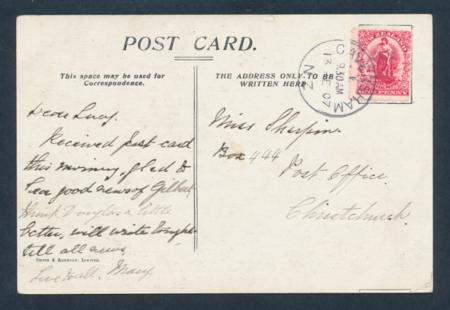 POST CARD.
This space may be used for
Correspondence.
THE ADDRESS ONLY TO BE
WRITTEN HERE
9.30 AM
13 DE 07
NZ
PENNY
Dear Lucy.
Received post card
this morning, glad to
hear good news of Gilbert
think Douglas a little
better, will write tonight
tell all news.
Love to all. Mary
Miss Sharpin
Box 444
Post Office
Christchurch.